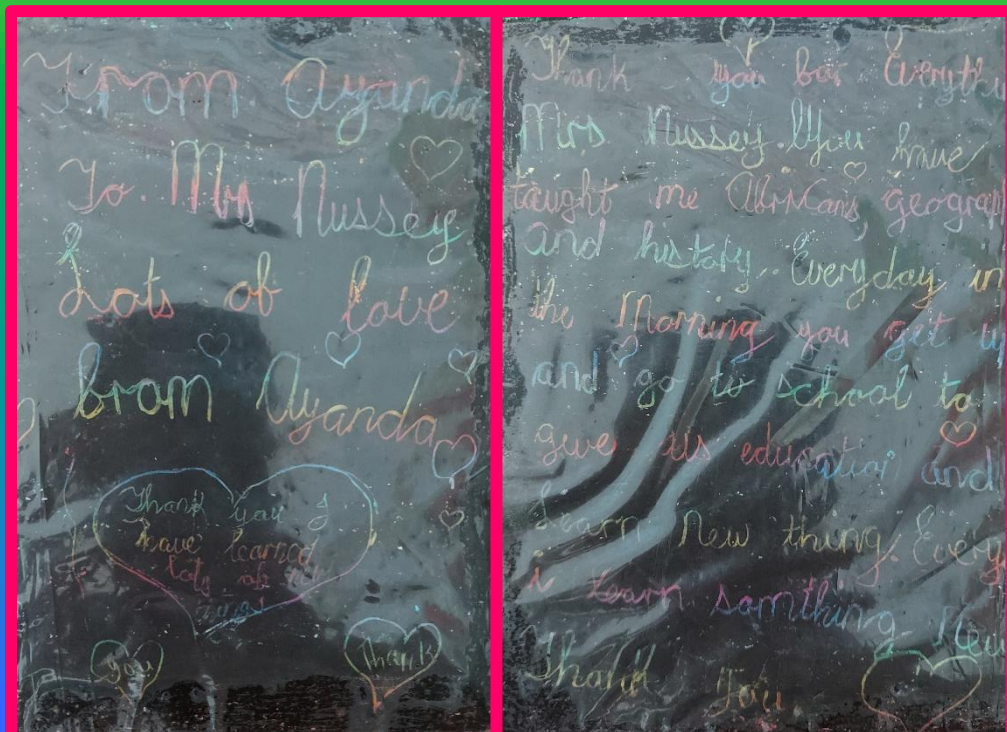 From Ayanda
To Mrs Nussey
Lots of love
from Ayanda
Thank you I
have learned
lots of
you
Thank
Thank you for Everyth
Mrs Nussey. You have
taught me Africans, geograp
and history. Everyday in
the Morning you get u
and go to school to
give us education and
Learn New thing. Every
i learn somthing New
Thank You